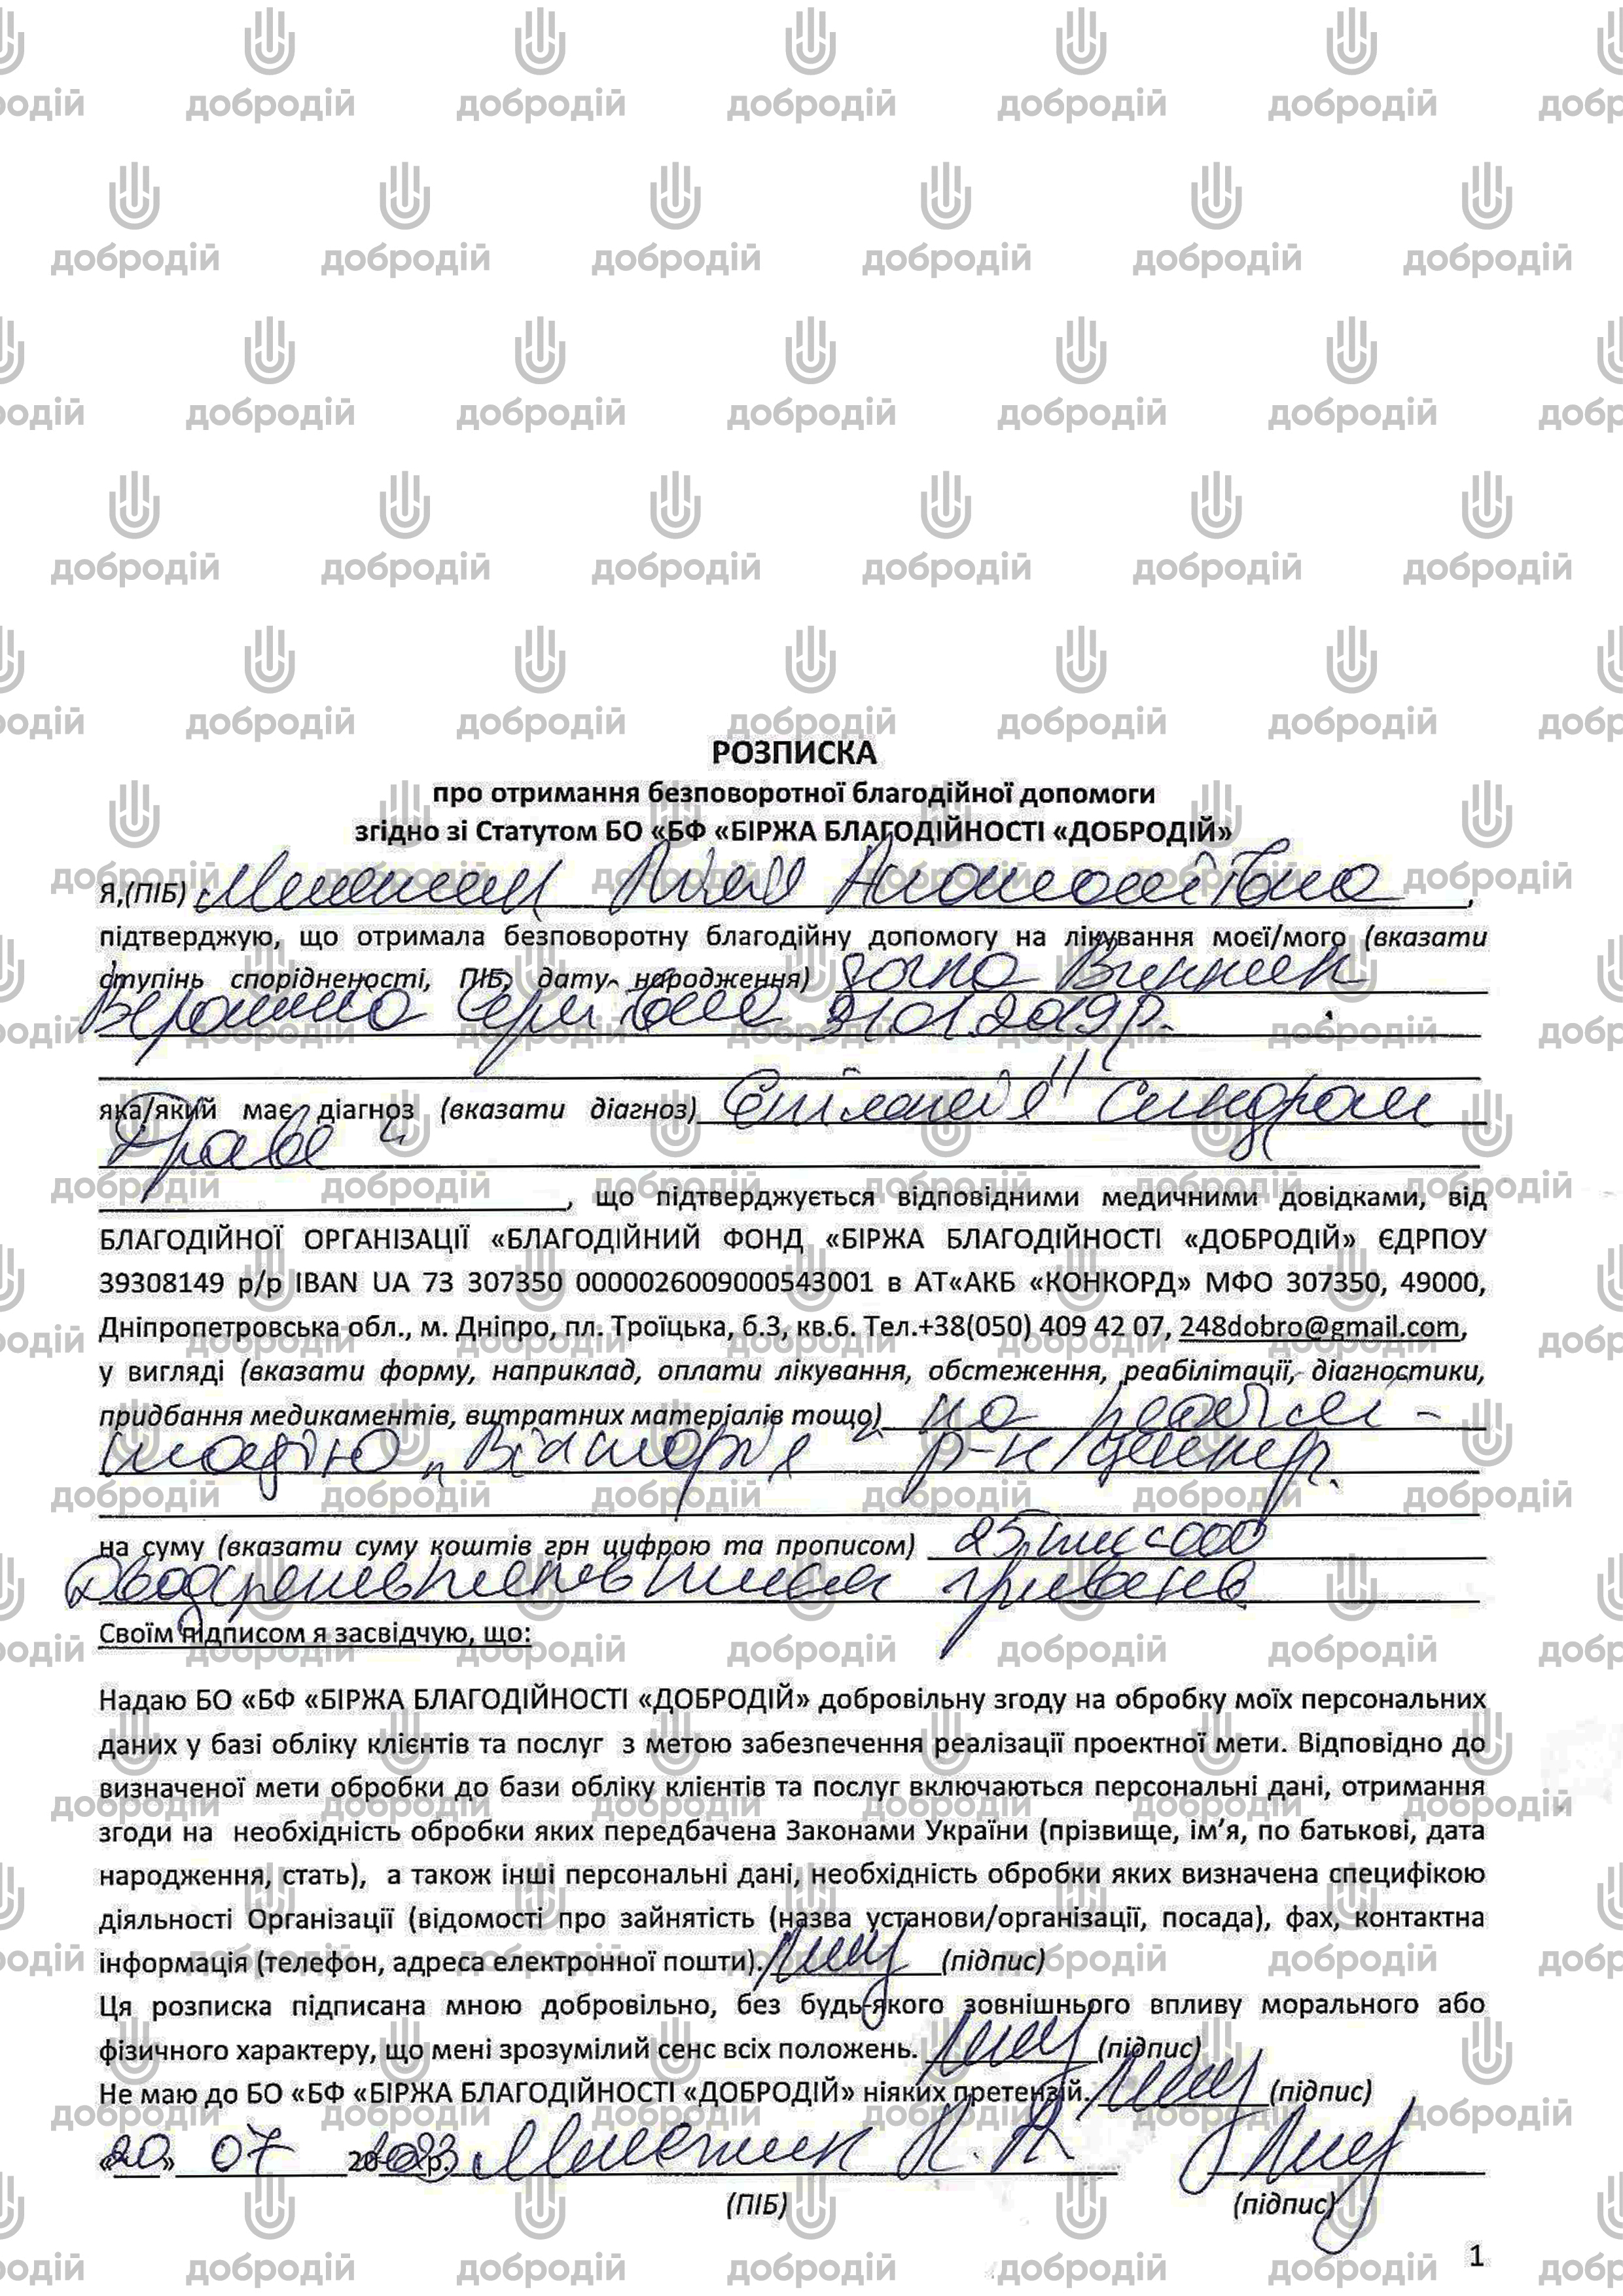 РОЗПИСКА
про отримання безповоротної благодійної допомоги
згідно зі Статутом БО «БФ «БІРЖА БЛАГОДІЙНОСТІ «ДОБРОДІЙ»
Я,(ПІБ) Анатоліївна,
підтверджую, що отримала безповоротну благодійну допомогу на лікування моєї/мого (вказати
ступінь спорідненості, ПІБ, дату народження) дочка Винник
Сергіївна 31.01.2019р.
яка/який має діагноз (вказати діагноз) Епілепсія "синдром
Драве"
, що підтверджується відповідними медичними довідками, від
БЛАГОДІЙНОЇ ОРГАНІЗАЦІЇ «БЛАГОДІЙНИЙ ФОНД «БІРЖА БЛАГОДІЙНОСТІ «ДОБРОДІЙ» ЄДРПОУ
39308149 р/р IBAN UA 73 307350 0000026009000543001 в АТ«АКБ «КОНКОРД» МФО 307350, 49000,
Дніпропетровська обл., м. Дніпро, пл. Троїцька, б.3, кв.6. Тел.+38(050) 409 42 07, 248dobro@gmail.com,
у вигляді (вказати форму, наприклад, оплати лікування, обстеження, реабілітації, діагностики,
придбання медикаментів, витратних матеріалів тощо) на реабілі-
тацію "Вікторія"
на суму (вказати суму коштів грн цифрою та прописом) 25 тис 000
Двадцять пять тисяч гривень
Своїм підписом я засвідчую, що:
Надаю БО «БФ «БІРЖА БЛАГОДІЙНОСТІ «ДОБРОДІЙ» добровільну згоду на обробку моїх персональних
даних у базі обліку клієнтів та послуг з метою забезпечення реалізації проектної мети. Відповідно до
визначеної мети обробки до бази обліку клієнтів та послуг включаються персональні дані, отримання
згоди на необхідність обробки яких передбачена Законами України (прізвище, ім’я, по батькові, дата
народження, стать), а також інші персональні дані, необхідність обробки яких визначена специфікою
діяльності Організації (відомості про зайнятість (назва установи/організації, посада), фах, контактна
інформація (телефон, адреса електронної пошти). (підпис)
Ця розписка підписана мною добровільно, без будь-якого зовнішнього впливу морального або
фізичного характеру, що мені зрозумілий сенс всіх положень. (підпис)
Не маю до БО «БФ «БІРЖА БЛАГОДІЙНОСТІ «ДОБРОДІЙ» ніяких претензій. (підпис)
«20» 07 2023р.
(ПІБ) (підпис)
1